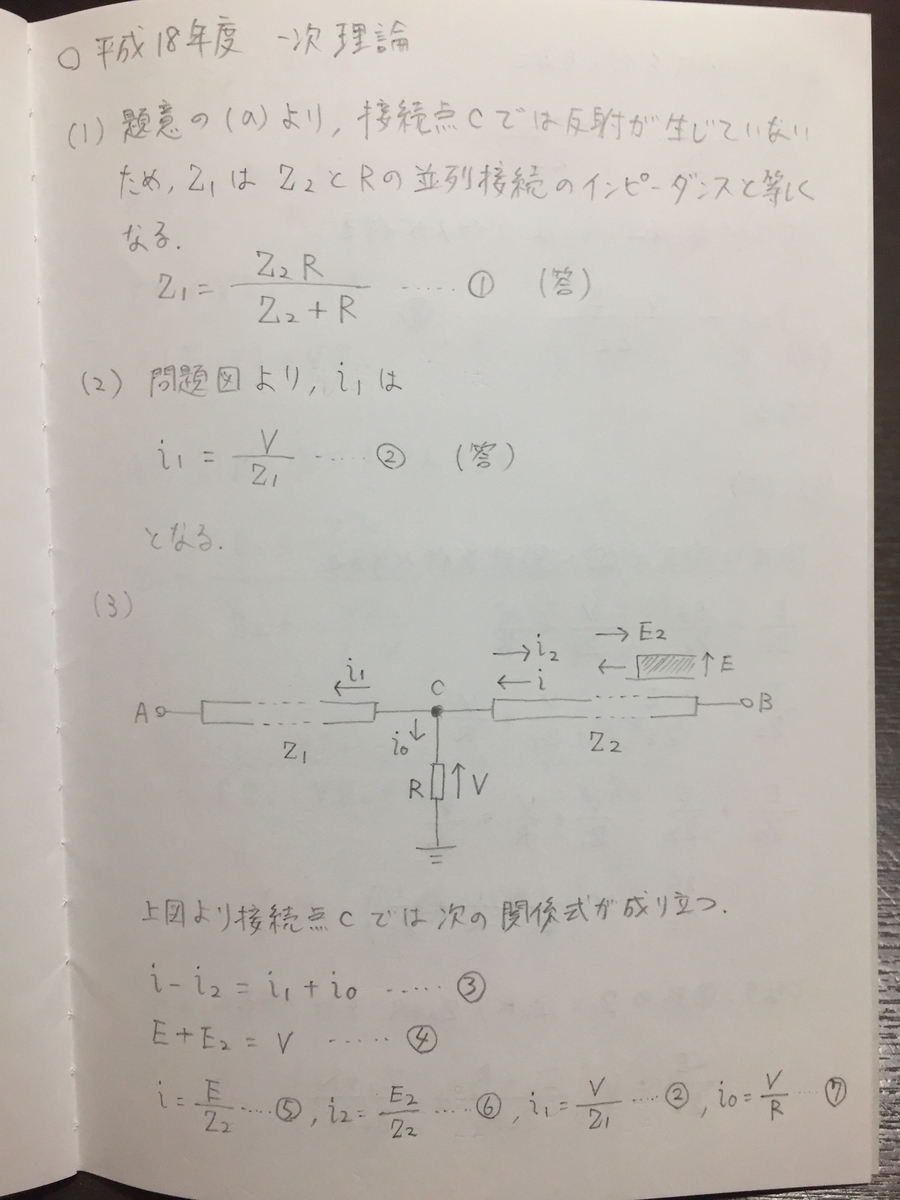 ○平成18年度 一次 理論
(1) 題意の(a)より, 接続点Cでは反射が生じていない
ため, Z1は Z2とRの並列接続のインピーダンスと等しく
なる.
Z1 = Z2 R / (Z2 + R) ····· ① (答)
(2) 問題図より, i1は
i1 = V / Z1 ····· ② (答)
となる.
(3)
→ E2
→ i2
← ↑ E
i1 ←
← i
C
A
B
i0 ↓
Z1
Z2
R ↑ V
上図より接続点Cでは次の関係式が成り立つ.
i - i2 = i1 + i0 ····· ③
E + E2 = V ····· ④
i = E / Z2 ···· ⑤, i2 = E2 / Z2 ···· ⑥, i1 = V / Z1 ···· ②, i0 = V / R ··· ⑦